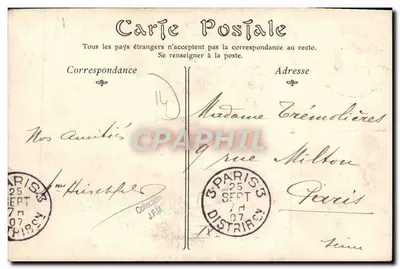 Carte Postale
Tous les pays étrangers n'acceptent pas la correspondance au recto.
Se renseigner à la poste.
Correspondance
Adresse
14
Madame Trémolières
Nos Amitiés
9 rue Milton
Paris
CPAPHIL
PARIS 3
25
SEPT
7 H
07
DISTRIBON
3 PARIS 3
25
SEPT
7 H
07
DISTRIBON
Collection